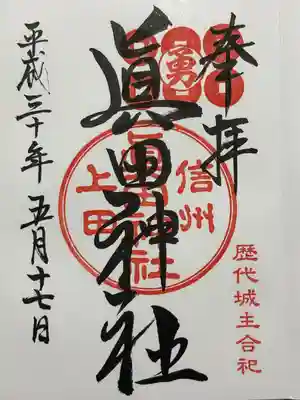 奉拝
歴代城主合祀
勇
信州
上田
眞田神社
眞田神社
平成三十年五月十七日